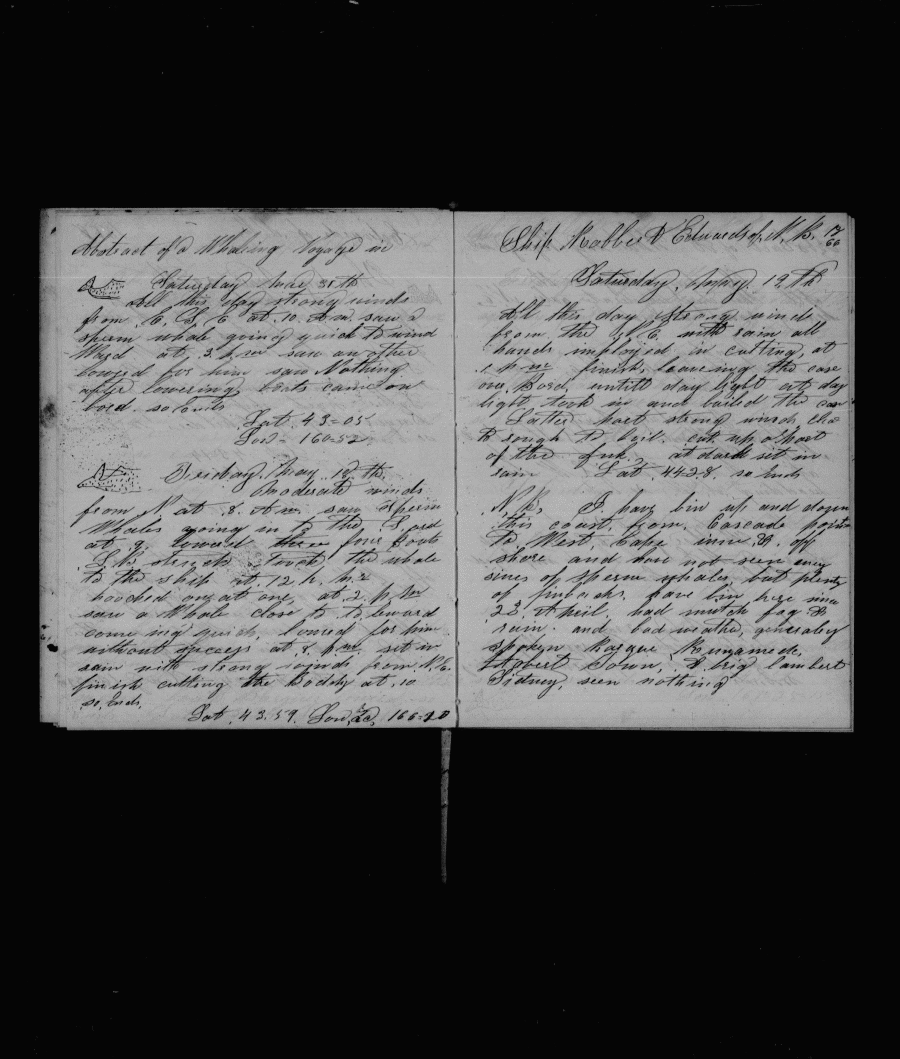 Abstract of a Whaling Voyage in
Saturday
All this day strong winds
from E. S. E at. 10. A m. saw a
sperm whale going quick to wind
Ward at. 3. P. m saw an other
lowered for him saw Nothing
after lowering boats came on
bord. so Ends
Lat 43=05
Lon= 160=52
Friday May. 18 th.
Moderate winds
from N at. 8. A m. saw Sperm
Whales going in to the S. ard
at. 9. lowerd four boats
L. B. struck Toock the whale
to the ship at. 12 h. No 2
hoocked on at one, at. 2. p. m
saw a Whale close to to leward
come ing quick, lowred for him
without success at 8. P m. set in
rain with strong winds from N. E.
finish cutting the boddy at. 10
so Ends.
Lat. 43.59. Lon 166-20
Ship Robbert Edwards of N. B.
Saturday. May. 19 th
All this day strong winds
from the N. E. with rain all
hands imployed in cutting, at
P. m finish, leaveing the case
on, bord, untill day light at day
light took in and bailed the case
Latter part strong winds, the
to rough to boil. cut up a part
of the junk. at dark set in
rain Lat 44.28. so Ends
N. B. I have bin up and down
this coast from. Cascade point
to West Cape inn &. off
shore and have not seen eney
sines of sperm whales, but plenty
of finbacks. have bin here since
23. April. had mutch fog &
rain. and bad weather, generaley
spoken Barque Runnamede,
Hobert Town, & brig lambert
Sidney, seen nothing